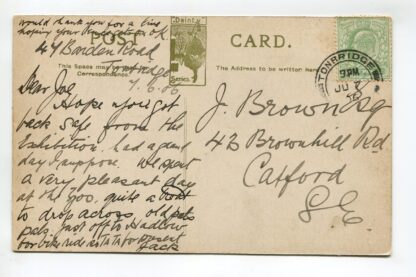 would thank you for a line
hoping your
POST
CARD.
Dainty
Series
47 Barden Road
Tonbridge
7.6.06
This Space may be
Correspondence.
The Address to be written here
TONBRIDGE
9 PM
JU 7
Dear Joe,
Hope you got
back safe from the
Exhibition. had a grand
day I suppose. We spent
a very pleasant day
at the zoo. quite a treat
to drop across, old pals
pals. just off to Hadlow
for bike ride so ta ta for present
Jack
J. Brown Esq
42 Brownhill Rd
Catford
S.E.